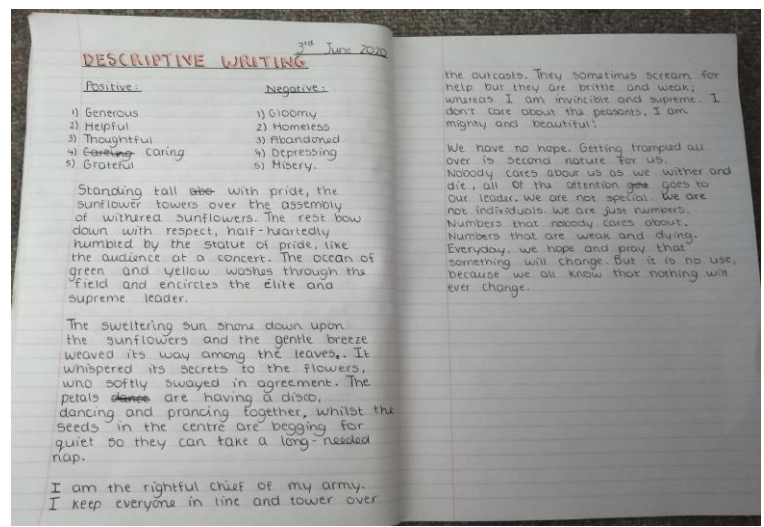 3rd June 2020
DESCRIPTIVE WRITING
Positive:
1) Generous
2) Helpful
3) Thoughtful
4) Careing caring
5) Grateful
Negative:
1) Gloomy
2) Homeless
3) Abandoned
4) Depressing
5) Misery.
Standing tall abo with pride, the
sunflower towers over the assembly
of withered sunflowers. The rest bow
down with respect, half-heartedly
humbled by the statue of pride, like
the audience at a concert. The ocean of
green and yellow washes through the
field and encircles the élite and
supreme leader.
The sweltering sun shone down upon
the sunflowers and the gentle breeze
weaved its way among the leaves. It
whispered its secrets to the flowers,
who softly swayed in agreement. The
petals dance are having a disco,
dancing and prancing together, whilst the
seeds in the centre are begging for
quiet so they can take a long-needed
nap.
I am the rightful chief of my army.
I keep everyone in line and tower over
the outcasts. They sometimes scream for
help but they are brittle and weak;
whereas I am invincible and supreme. I
don't care about the peasants, I am
mighty and beautiful!
We have no hope. Getting trampled all
over is second nature for us.
Nobody cares about us as we wither and
die, all of the attention goes to
our leader. We are not special. We are
not individuals. We are just numbers.
Numbers that nobody cares about.
Numbers that are weak and dying.
Everyday, we hope and pray that
something will change. But it is no use,
because we all know that nothing will
ever change.